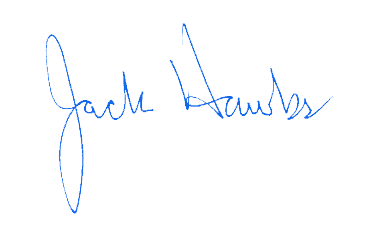 Jack Hawks